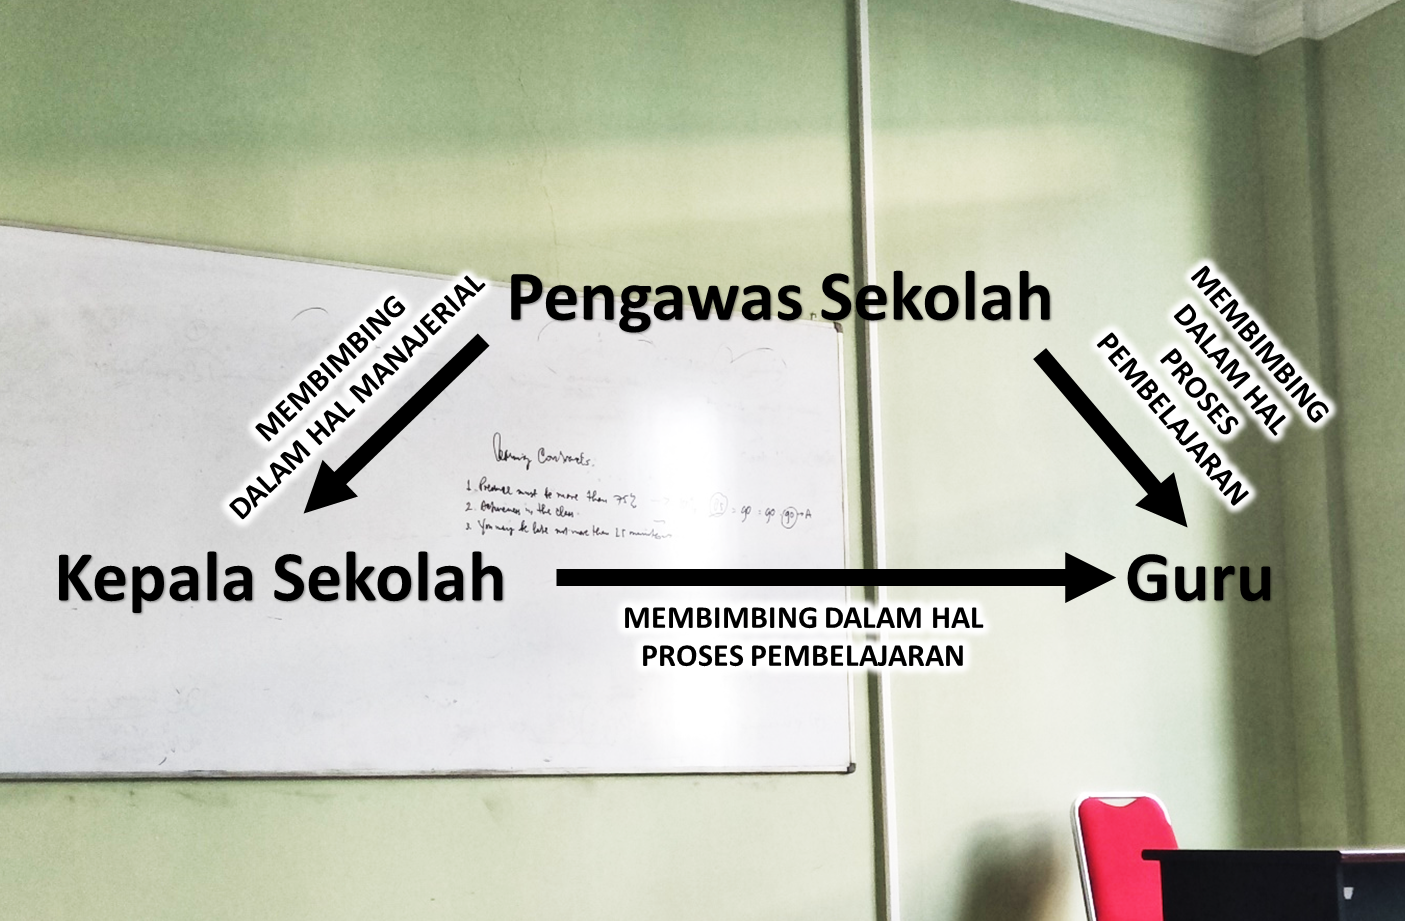 Pengawas Sekolah
MEMBIMBING
DALAM HAL MANAJERIAL
MEMBIMBING
DALAM HAL
PROSES
PEMBELAJARAN
Kepala Sekolah
Guru
MEMBIMBING DALAM HAL
PROSES PEMBELAJARAN
1. must be more than 75%
2. in the class.
3. You may be late not more than 15
= 90 = 90 90 → A